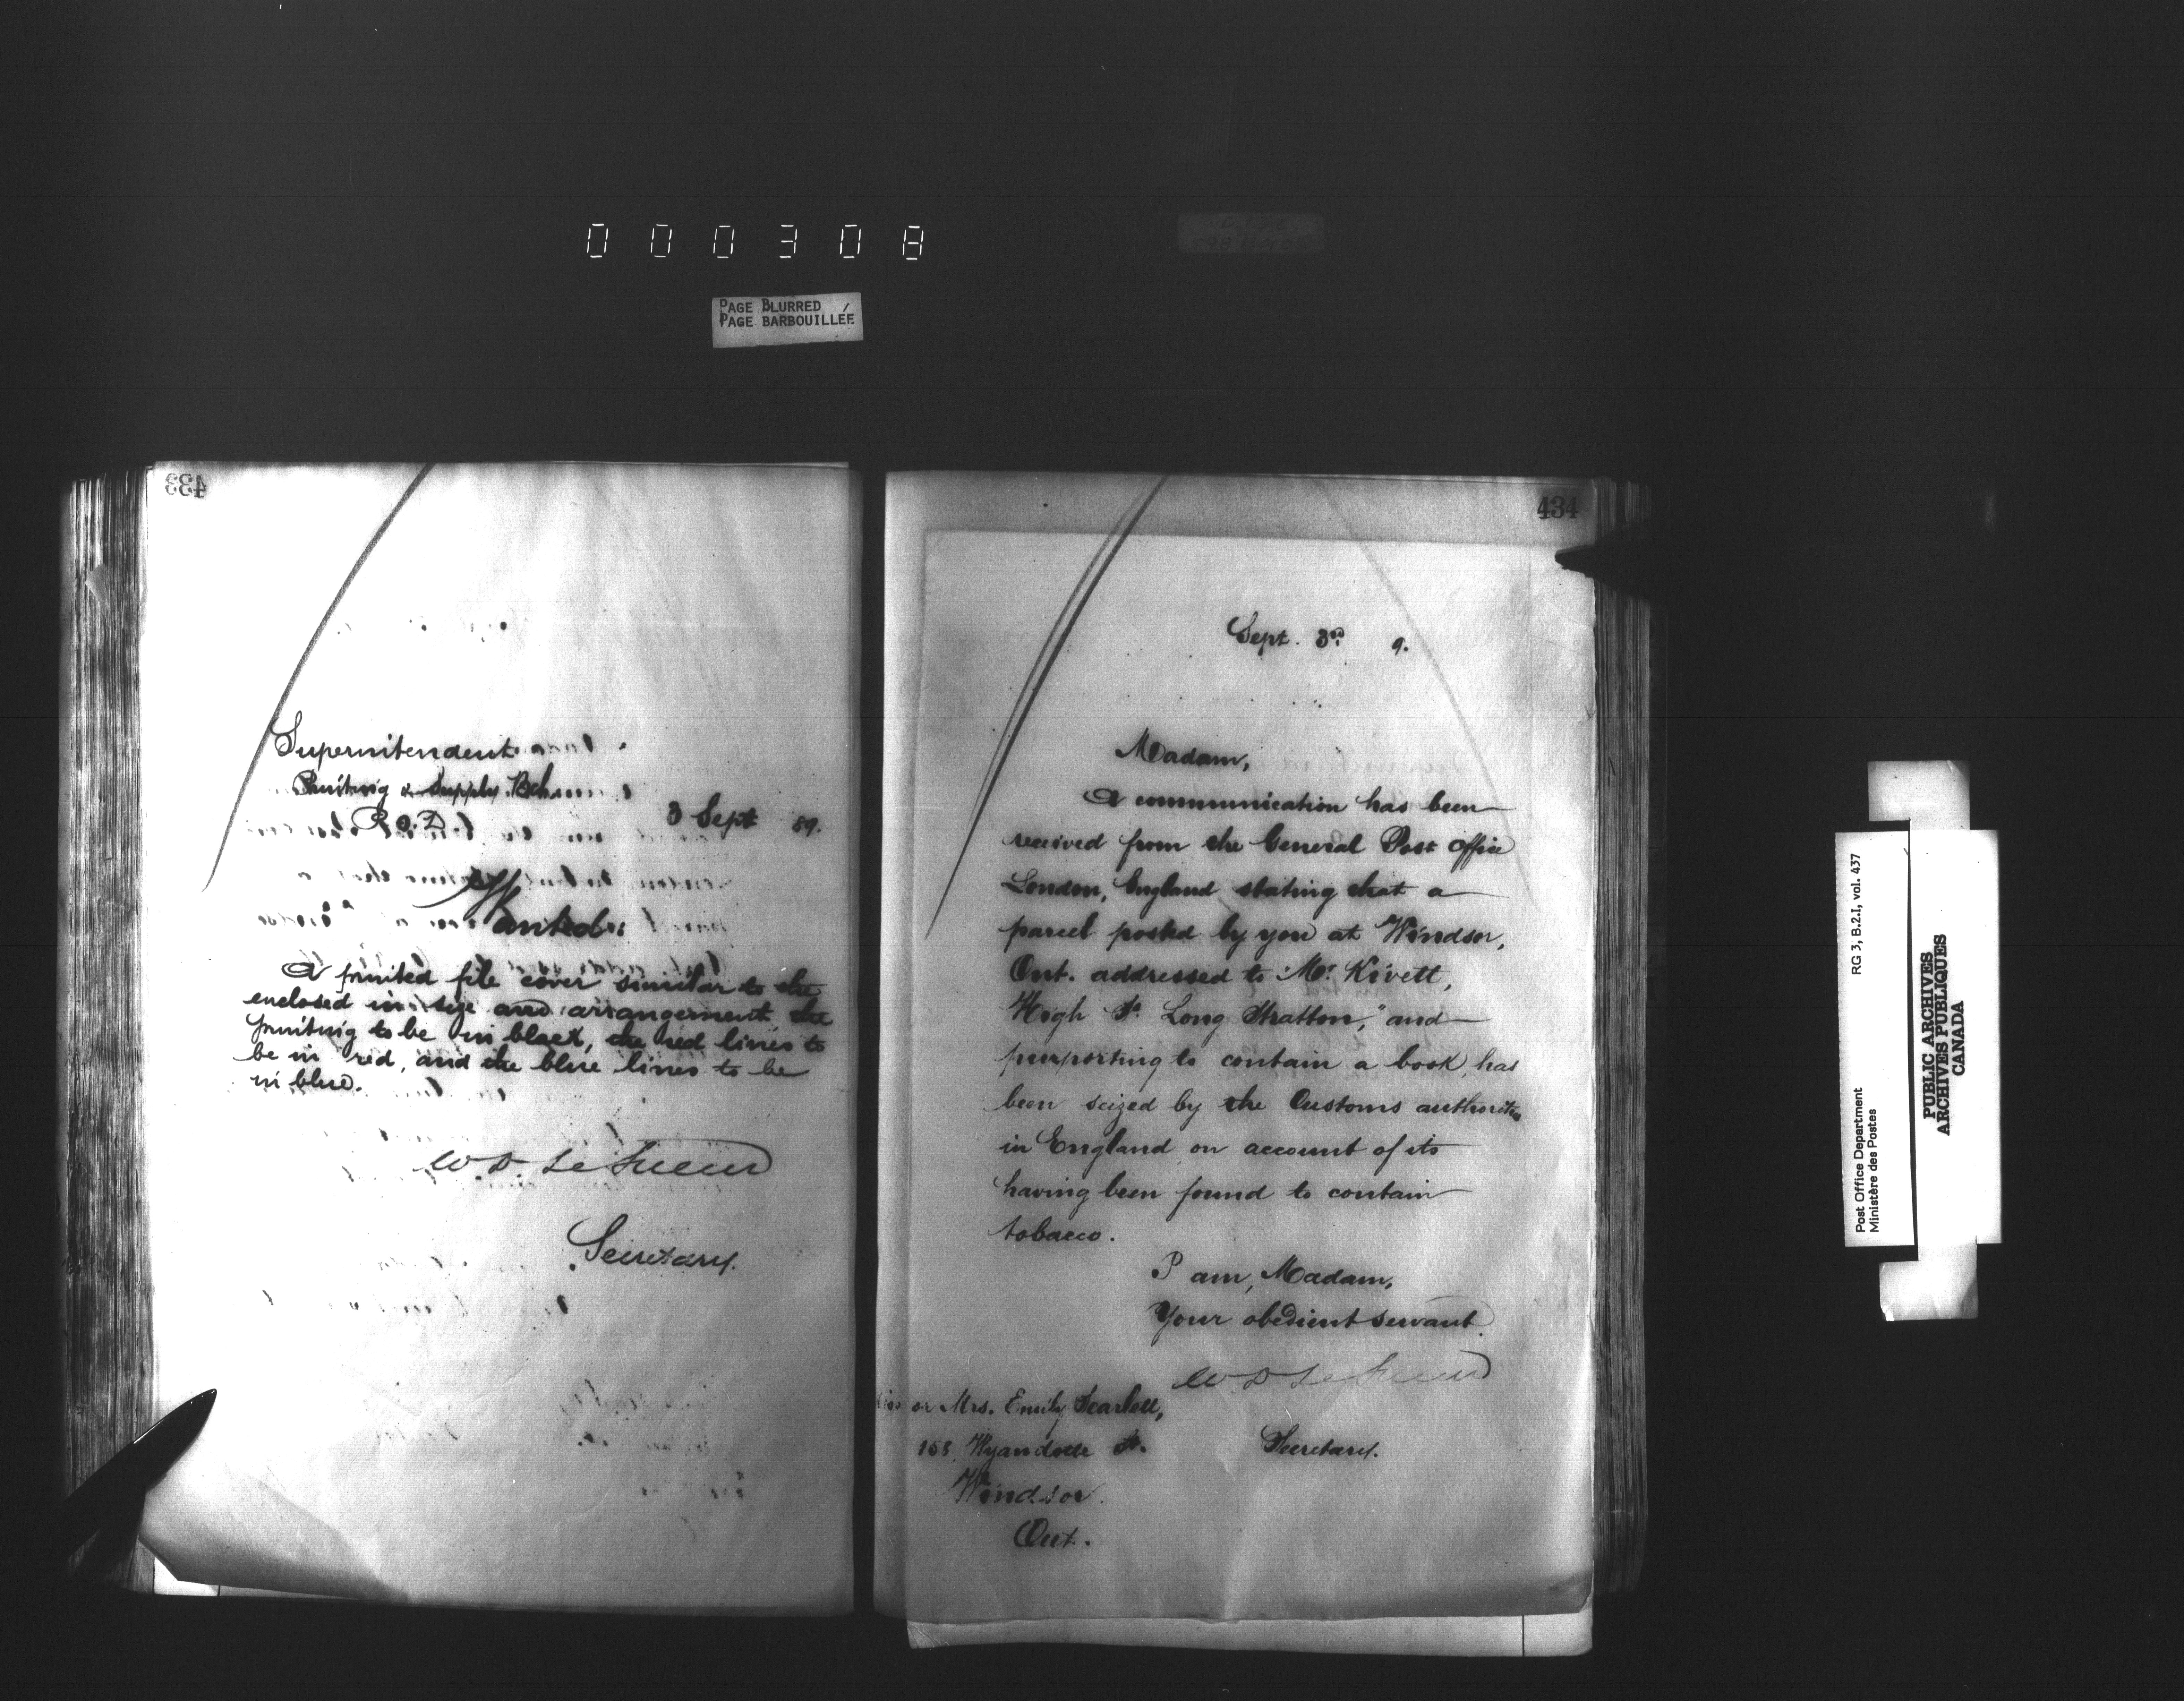 000308
PAGE BLURRED
PAGE BARBOUILLÉE
433
Superintendent
Printing & Supply Bch
P.O.D. 3 Sept 89.
Wanted:
A printed file cover similar to the
enclosed in size and arrangement the
printing to be in black, the red lines to
be in red, and the blue lines to be
in blue.
W D Le Sueur
Secretary.
434
Sept. 3rd 9.
Madam,
A communication has been
received from the General Post Office
London, England stating that a
parcel posted by you at Windsor,
Ont. addressed to "Mr Kivett,
High St. Long Stratton," and
purporting to contain a book, has
been seized by the Customs authorities
in England on account of its
having been found to contain
tobacco.
I am, Madam,
Your obedient servant.
W D Le Sueur
Secretary.
or Mrs. Emily Scarlett,
Wyandotte St.
Windsor.
Ont.
RG 3, B.2.I, vol. 437
Post Office Department
Ministère des Postes
PUBLIC ARCHIVES
ARCHIVES PUBLIQUES
CANADA